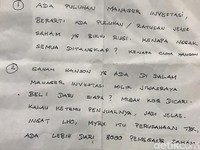 ① ADA PULUHAN MANAGER INVESTASI,
BERARTI ADA PULUHAN / RATUSAN JENIS
SAHAM YG BIKIN RUGI. KENAPA NGGAK
SEMUA DITANGKAP? KENAPA CUMA HANSON
② SAHAM HANSON YG ADA DI DALAM
MANAGER INVESTASI MILIK JIWASRAYA
BELI DARI SIAPA? MESTI KOK DICARI
KALAU KETEMU PENJUALNYA, JADI JELAS.
INGAT LHO, MYRX ITU PERUSAHAAN TBK.
ADA LEBIH DARI 8500 PEMEGANG SAHAM
detikcom